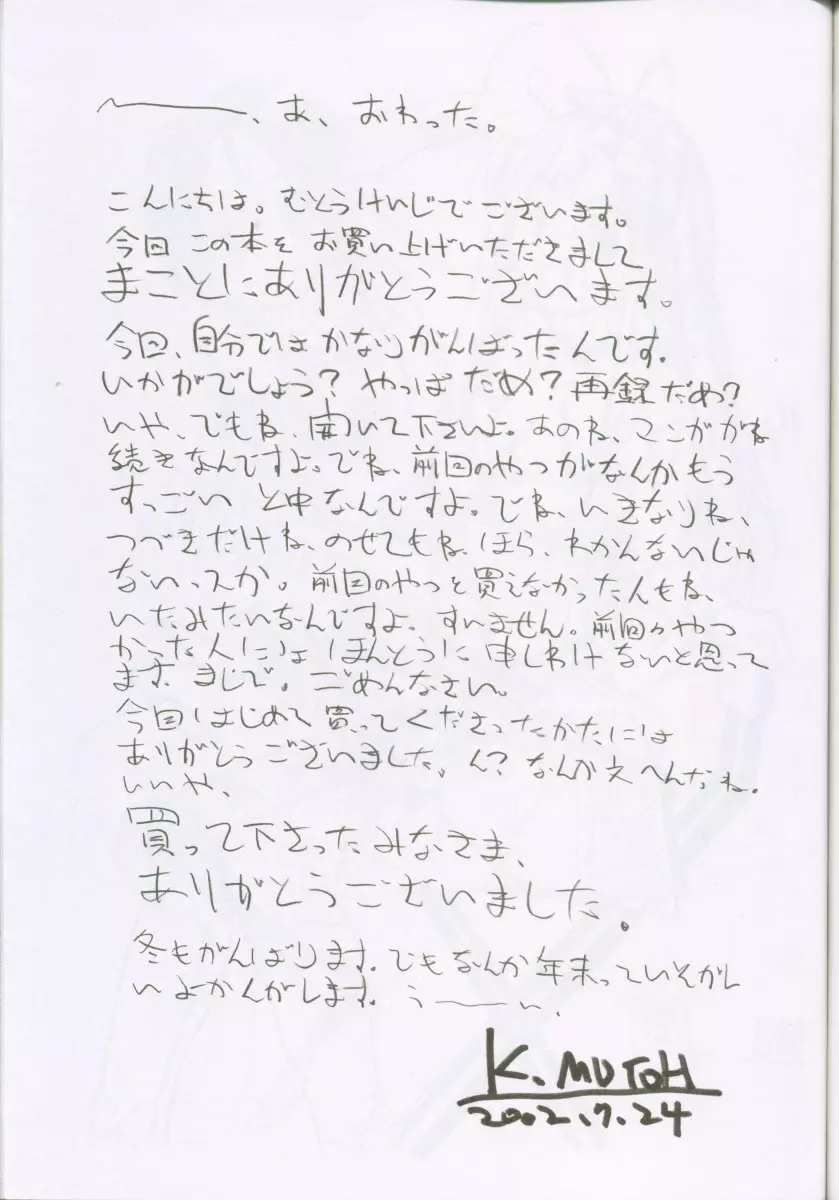 〜──、あ、おわった。
こんにちは。むとうけいじでございます。
今回この本をお買い上げいただきまして
まことにありがとうございます。
今回、自分ではかなりがんばったんです。
いかがでしょう？やっぱだめ？再録だめ？
いや、でもね、聞いて下さいよ。あのね、マンガがね
続きなんですよ。でね、前回のやつがなんかもう
すっごいと中なんですよ。でね、いきなりね、
つづきだけね、のせてもね、ほら、わかんないじゃ
ないっスか。前回のやつを買えなかった人もね、
いたみたいなんですよ。すいません。前回のやつ
かった人にはほんとうに申しわけないと思って
ます。まじで。ごめんなさい。
今回はじめて買ってくださったかたには
ありがとうございました。ん？なんか文へんだね。
いいや、
買って下さったみなさま、
ありがとうございました。
冬もがんばります。でもなんか年末っていそがし
いよかんがします。うーーい、
K.MUTOH
2002.7.24